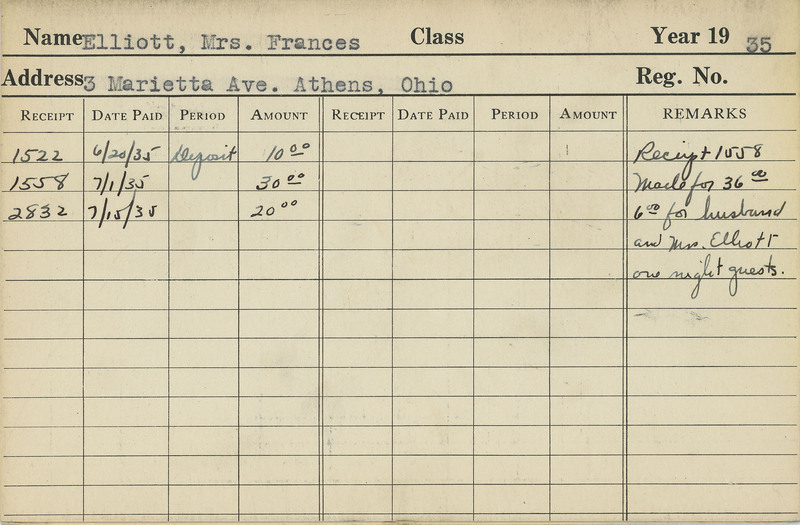 Name Elliott, Mrs. Frances Class Year 19 35
Address 3 Marietta Ave. Athens, Ohio Reg. No.
RECEIPT DATE PAID PERIOD AMOUNT RECEIPT DATE PAID PERIOD AMOUNT REMARKS
1522 6/20/35 Deposit 10 00 Receipt 1558
1558 7/1/35 30 00 Made for 36 00
2832 7/15/35 20 00 6 00 for husband
and Mrs. Elliott
one night guests.